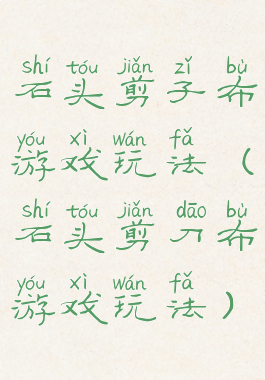 shí tóu jiǎn zǐ bù
石头剪子布
yóu xì wán fǎ
游戏玩法（
shí tóu jiǎn dāo bù
石头剪刀布
yóu xì wán fǎ
游戏玩法）